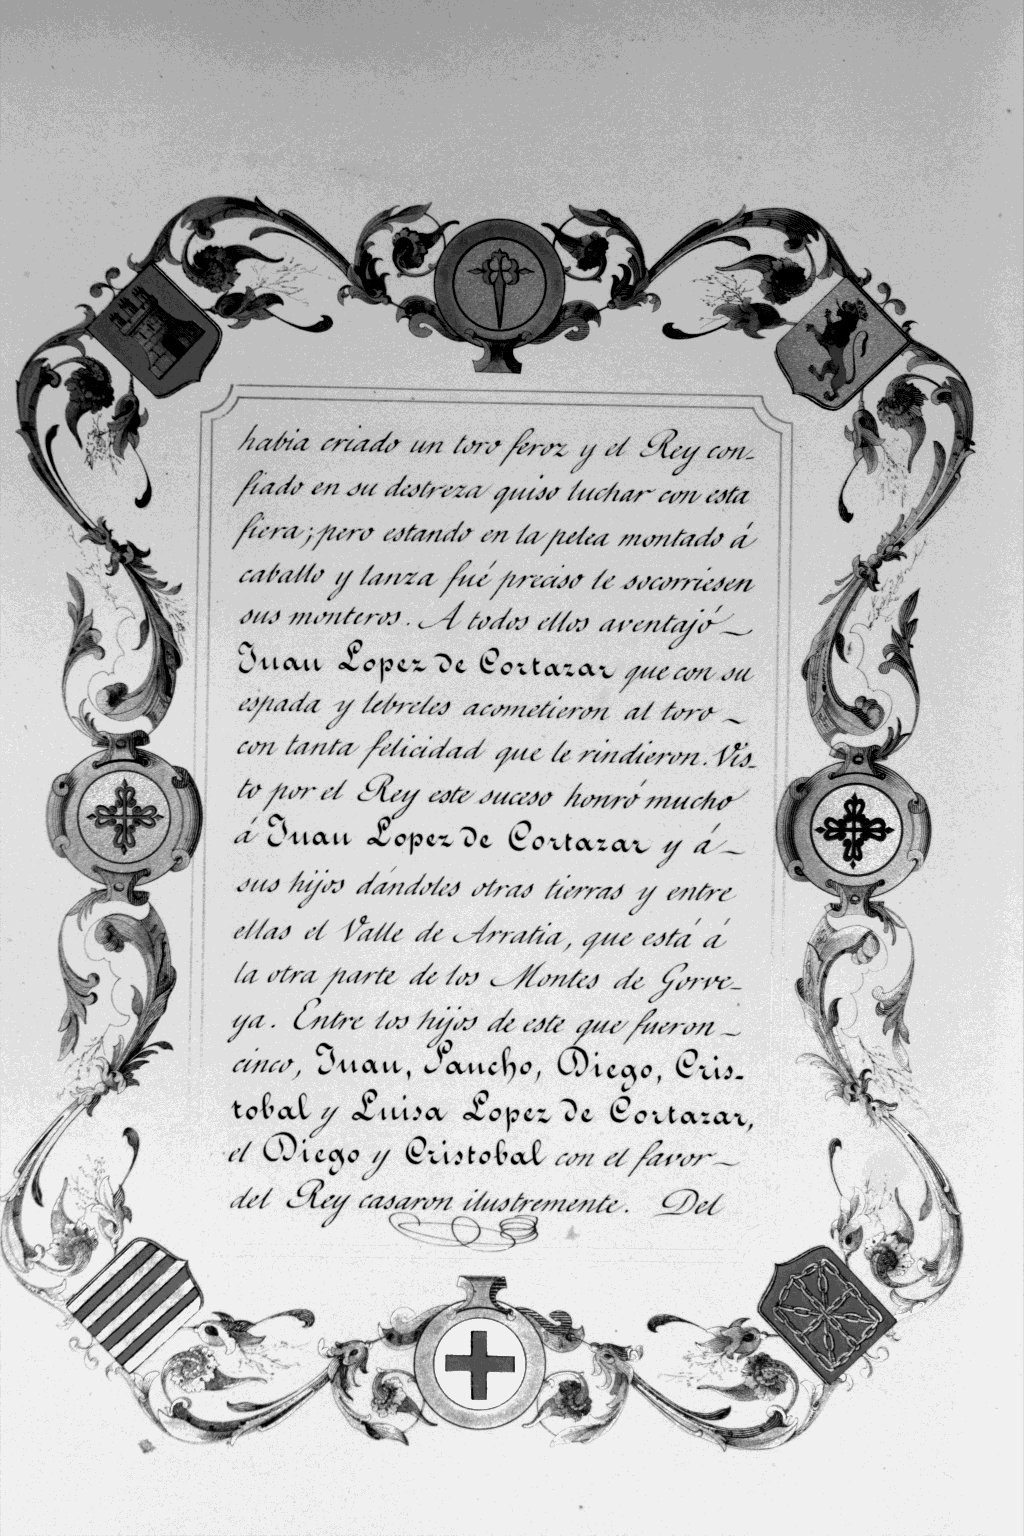 habia criado un toro feroz y el Rey con-
fiado en su destreza quiso luchar con esta
fiera; pero estando en la pelea montado á
caballo y lanza fué preciso le socorriesen
sus monteros. A todos ellos aventajó —
Juan Lopez de Cortazar que con su
espada y lebreles acometieron al toro —
con tanta felicidad que le rindieron. Vis-
to por el Rey este suceso honró mucho
á Juan Lopez de Cortazar y á —
sus hijos dándoles otras tierras y entre
ellas el Valle de Arratia, que está á
la otra parte de los Montes de Gorve-
ya. Entre los hijos de este que fueron —
cinco, Juan, Sancho, Diego, Cris-
tobal y Luisa Lopez de Cortazar,
el Diego y Cristobal con el favor —
del Rey casaron ilustremente. Del